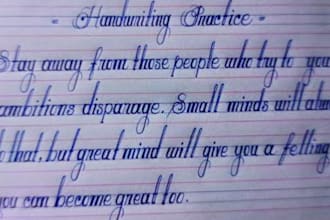 - Handwriting Practice -
Stay away from those people who try to you
ambitions disparage. Small minds will alw
o that, but great mind will give you a felling
you can become great too.